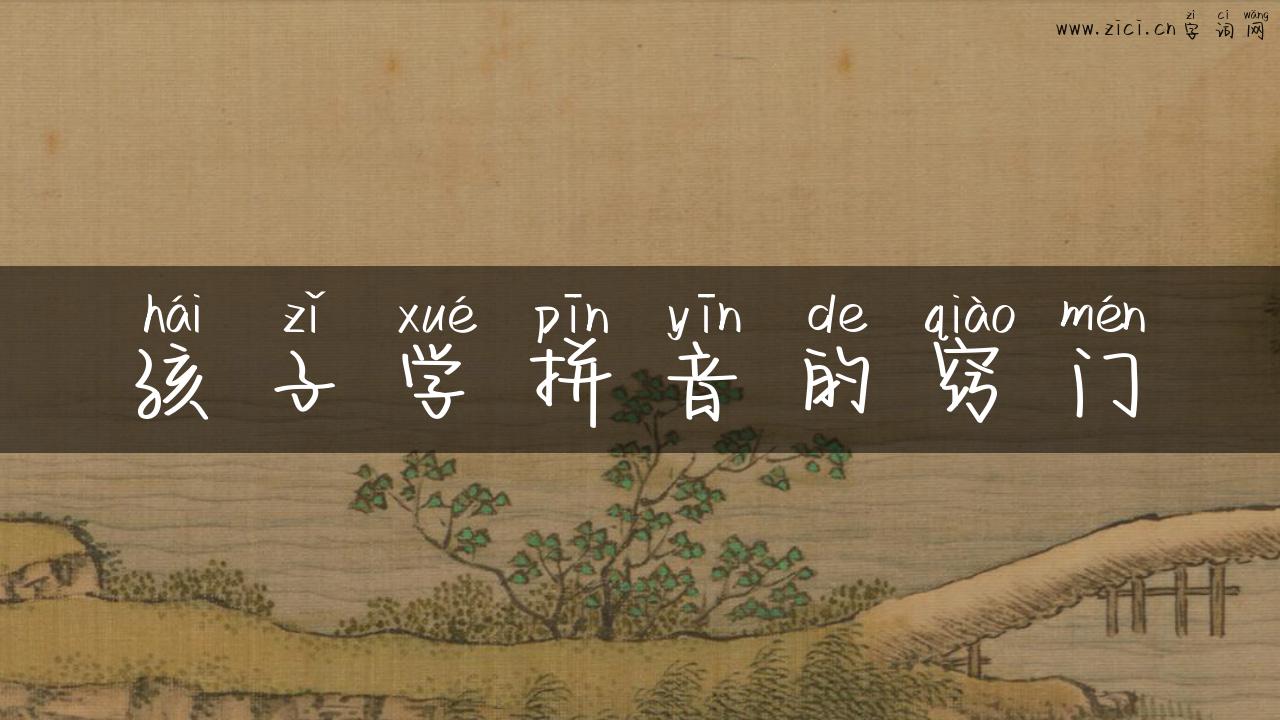 zì cí wǎng
www.zici.cn 字 词 网
hái zǐ xué pīn yīn de qiào mén
孩 子 学 拼 音 的 窍 门